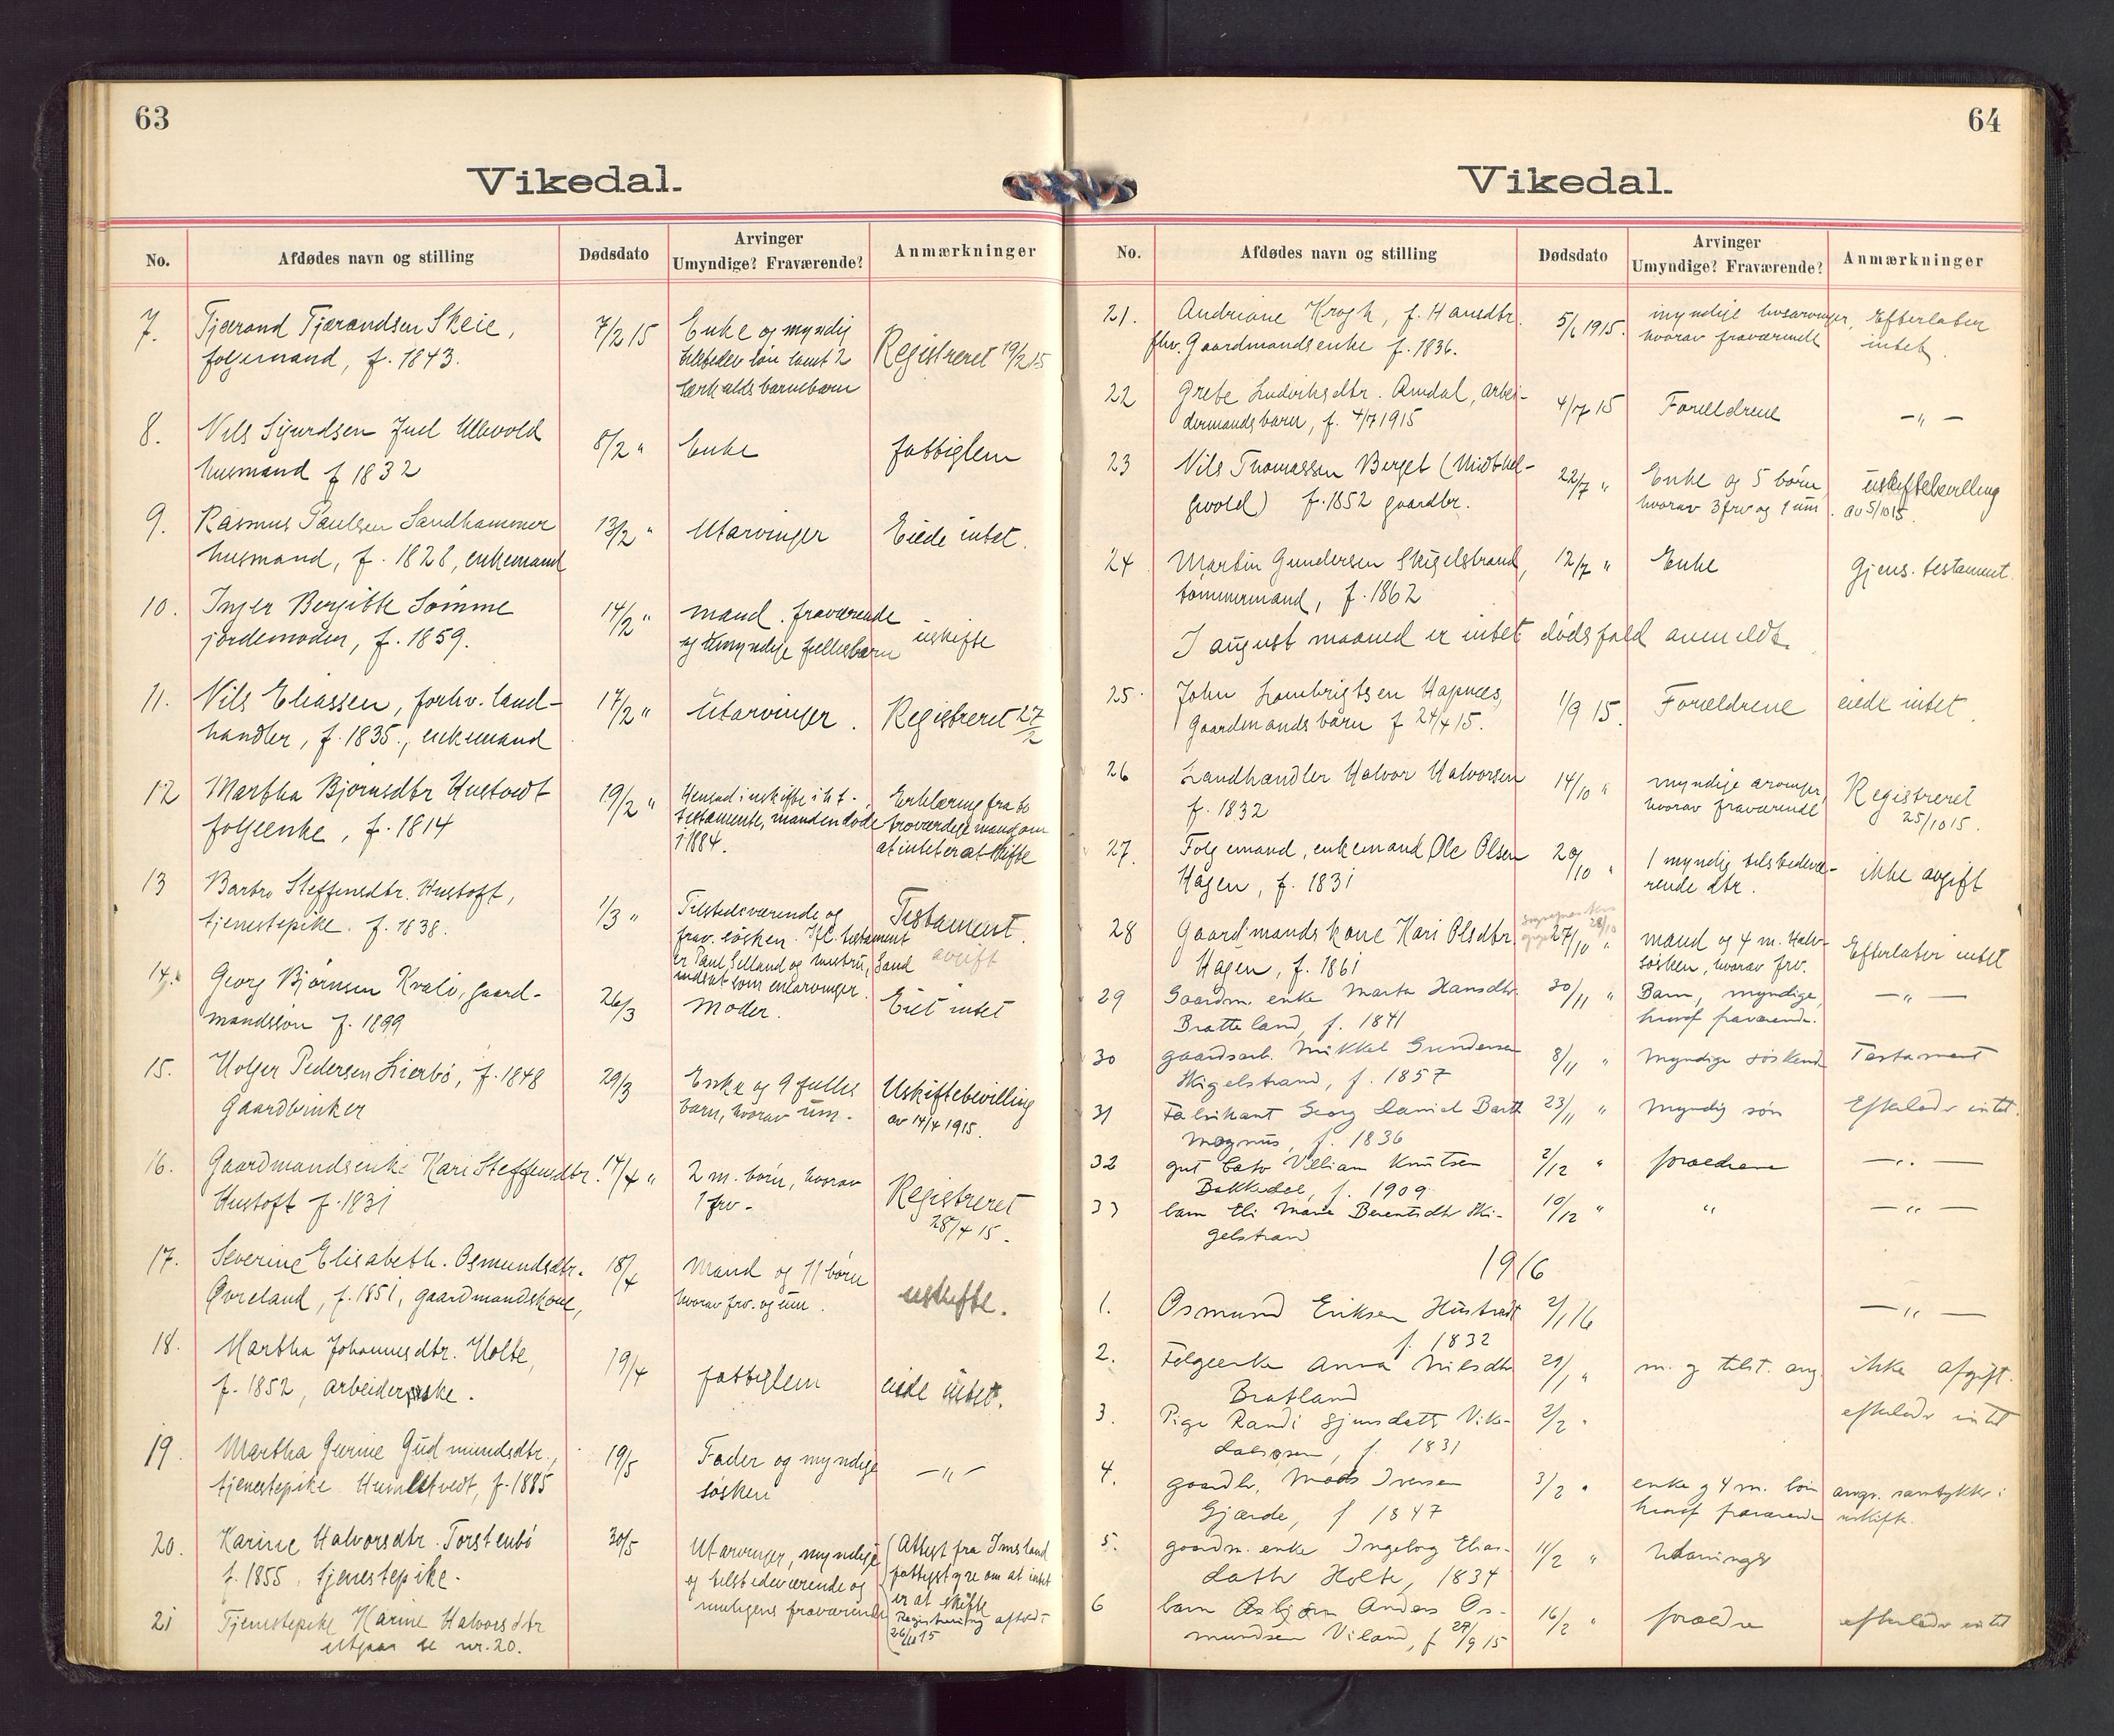 63
Vikedal.
No. Afdødes navn og stilling Dødsdato Arvinger Umyndige? Fraværende? Anmærkninger
7. Tjærand Tjærandsen Skeie, 7/2 15 Enke og myndig
følgemand, f. 1843. tilstedev. søn samt 2 Registreret 19/2 15
særkulds barnebarn
8. Nils Sjurdsen Juel Ulvevold 8/2 " Enke fattiglem
husmand f 1832
9. Rasmus Paulsen Sandhammer 13/2 " Utarvinger Eiede intet.
husmand, f. 1828, enkemand
10. Inger Bergitte Sømme 14/2 " mand. fraværende
jordemoder, f. 1859. og umyndige fellesbarn uskifte
11. Nils Eliassen, forhv. land- 17/2 " Utarvinger. Registreret 27/2
handler, f. 1835, enkemand
12 Martha Bjørnsdtr Hustvedt 19/2 " Hensad i uskifte i h.t. Erklæring fra to
følgeenke, f. 1814 testamente, manden døde troværdige mænd om
i 1884. at intet er at skifte
13 Barbro Steffensdtr. Hustoft, 1/3 " Tilstedeværende og Testament.
tjenestepike. f. 1838. frav. søsken. Ifl. testament avgift
er Paul Selland og hustru, Sand
indsat som enearvinger.
14. Georg Bjørnsen Kvalø, gaard- 26/3 Moder. Eiet intet
mandssøn f. 1899
15. Holger Pedersen Lierbø, f. 1848 29/3 Enke og 9 felles Uskiftebevilling
Gaardbruker barn, hvorav um. av 14/4 1915.
16. Gaardmandsenke Kari Steffensdtr. 14/4 " 2 m. børn, hvorav Registreret
Hustoft f. 1831 1 frv. 28/4 15.
17. Severine Elisabeth Osmundsdtr. 18/4 Mand og 11 børn
Øvreland, f. 1851, gaardmandskone, hvorav frv. og um. uskifte.
18. Martha Johannesdtr. Holte, 19/4 fattiglem eiede intet.
f. 1852, arbeiderske.
19. Martha Gurine Gudmundsdtr., 19/5 Fader og myndige — " —
tjenestepike Humlestvedt, f. 1885 søsken
20. Karine Halvorsdtr. Torstenbø 30/5 Utarvinger, myndige Attest fra Imsland
f. 1855, tjenestepike. og tilstedeværende og fattigstyre om at intet
muligens fraværende er at skifte
Registrering afholdt
21 Tjenestepike Karine Halvorsdtr 26/ 15
utgaar se nr. 20.
64
Vikedal.
No. Afdødes navn og stilling Dødsdato Arvinger Umyndige? Fraværende? Anmærkninger
21. Andriane Krogh, f. Hansdtr. 5/6 1915. myndige livsarvinger, Efterlater
fhv. Gaardmandsenke f. 1836. hvorav fraværende intet.
22 Grete Ludviksdtr. Amdal, arbei- 4/7 15 Forældrene — " —
dermandsbarn, f. 4/7 1915
23 Nils Thomassen Berget (Midthel- 22/7 " Enke og 5 børn, uskiftebevilling
gevold) f. 1852 gaardbr. hvorav 3 frv og 1 um. av 5/10 15.
24 Martin Gundersen Skigelstrand, 12/7 " Enke Gjens. testament.
tømmermand, f. 1862
I august maaned er intet dødsfald anmeldt.
25. John Lambrigtsen Hapnes, 1/9 15. Forældrene eiede intet.
Gaardmandsbarn f 24/4 15.
26 Landhandler Halvor Halvorsen 14/10 " myndige arvinger, Registreret
f. 1832 hvorav fraværende 25/10 15.
27. Følgemand, enkemand Ole Olsen 20/10 " 1 myndig tilstedevæ- ikke avgift
Hagen, f. 1831 rende dtr.
28 Gaardmandskone Kari Olsdtr 27/10 " mand og 4 m. Halv- Efterlater intet
Hagen, f. 1861 søsken, hvorav frv.
29 Gaardm. enke Marta Hansdtr. 30/11 " Barn, myndige, — " —
Bratteland, f. 1841 hvoraf fraværende.
30 gaardsarb. Mikkel Gundersen 8/11 " Myndige søskend Testament
Skigelstrand, f. 1857
31 Fabrikant Georg Daniel Barth 23/11 " Myndig søn Efterlader intet.
Magnus, f. 1836
32 gut Cato Villiam Knutsen 2/12 " forældrene — " —
Bakkedal, f. 1909
33 barn Eli Marie Berentsdtr Ski- 10/12 " " — " —
gelstrand
1916
1. Osmund Eriksen Hustvedt 2/1 16 — " —
f. 1832
2. Følgeenke Anna Nilsdtr 29/1 " m. og tilst. arv. ikke afgift.
Bratland
3. Pige Randi Sjursdatter Vike- 2/2 " efterlader intet
dalsøsen, f. 1831
4. gaardbr. Mads Iversen 3/2 " enke og 4 m. børn arvgs. samtykke i
Gjærde, f 1847 hvoraf fraværende uskifte.
5. gaardm. enke Ingeborg Elias- 11/2 " Udarvinger
datter Holte, 1834
6 barn Asbjørn Anders Os- 16/2 " forældre efterlader intet
mundsen Viland, f 27/9 15